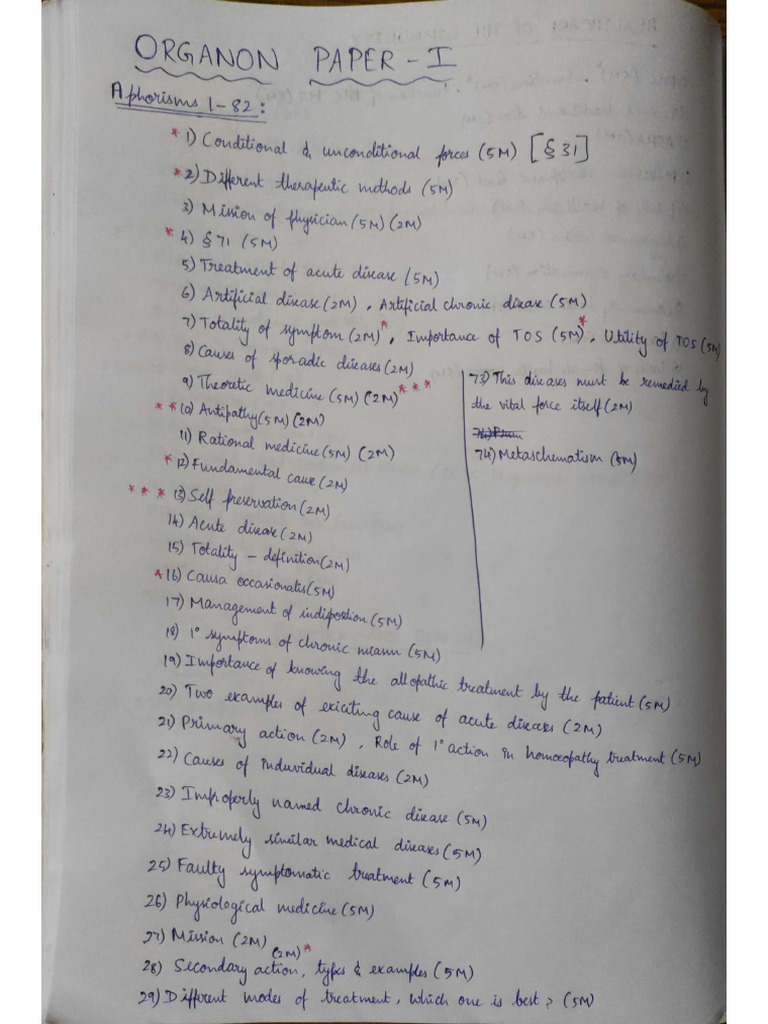 ORGANON PAPER - I
Aphorisms 1-82:
* 1) Conditional & unconditional forces (5M) [§ 31]
* 2) Different therapeutic methods (5M)
3) Mission of physician (5M) (2M)
* 4) § 71 (5M)
5) Treatment of acute disease (5M)
6) Artificial disease (2M), Artificial chronic disease (5M)
7) Totality of symptom (2M)*, Importance of TOS (5M)*, Utility of TOS (5M)
8) Causes of sporadic diseases (2M)
9) Theoretic medicine (5M) (2M)***
** 10) Antipathy (5M) (2M)
11) Rational medicine (5M) (2M)
* 12) Fundamental cause (2M)
*** 13) Self preservation (2M)
14) Acute disease (2M)
15) Totality - definition (2M)
* 16) Causa occasionatis (5M)
17) Management of indisposition (5M)
18) 1° symptoms of chronic miasm (5M)
19) Importance of knowing the allopathic treatment by the patient (5M)
20) Two examples of exiciting cause of acute diseases (2M)
21) Primary action (2M), Role of 1° action in homoeopathy treatment (5M)
22) Causes of induvidual diseases (2M)
23) Improperly named chronic disease (5M)
24) Extremely similar medical diseases (5M)
25) Faulty symptomatic treatment (5M)
26) Physiological medicine (5M)
27) Mission (2M)
(2M)*
28) Secondary action, types & examples (5M)
29) Different modes of treatment, which one is best? (5M)
73) This diseases must be remedied by
the vital force itself (2M)
74) Metaschematism (5M)